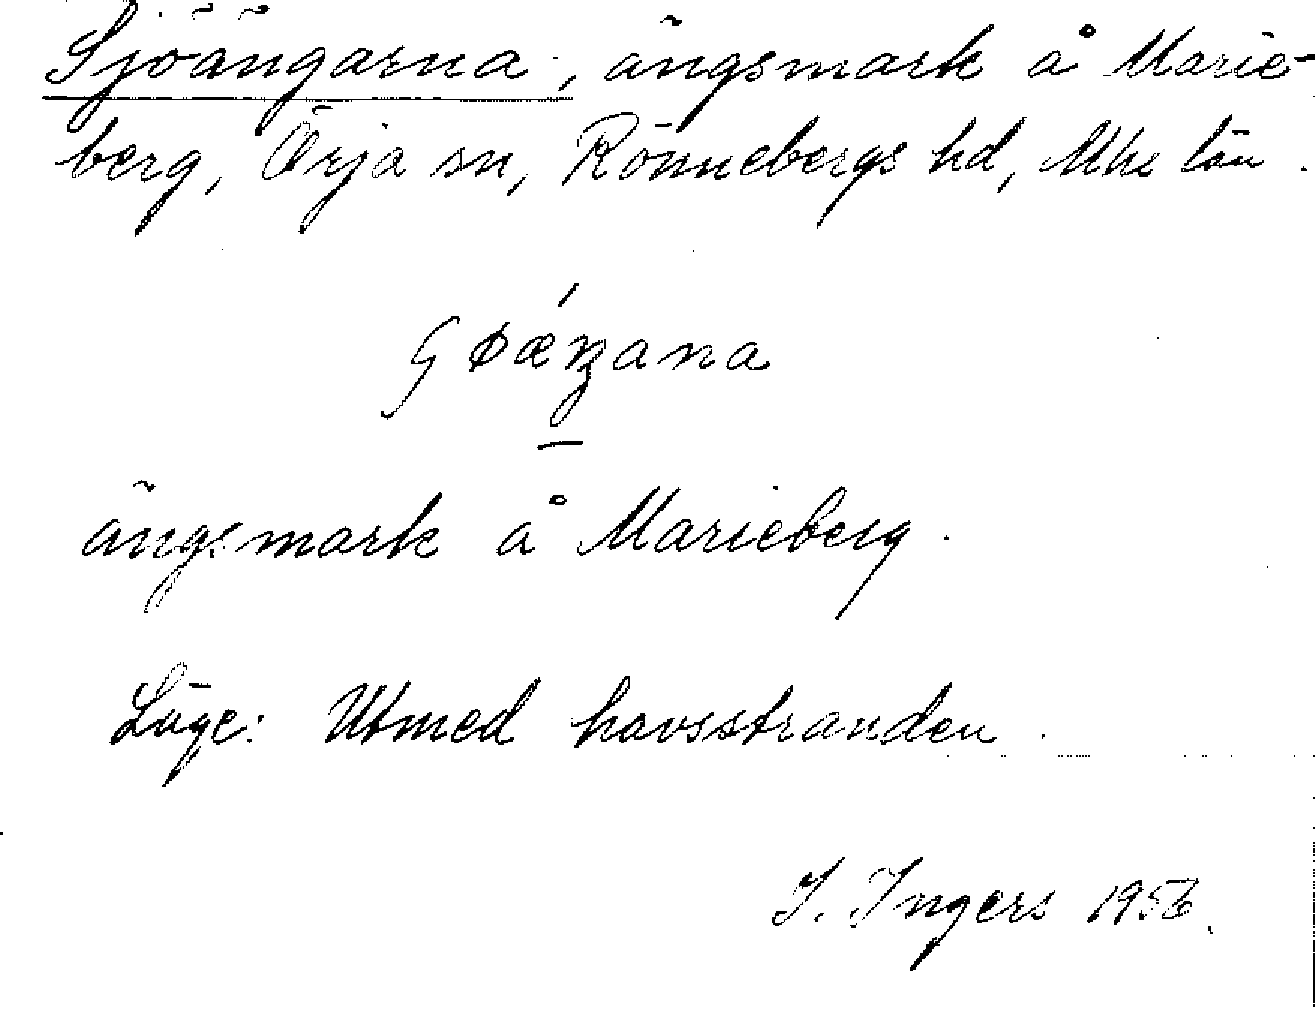 Sjöängarna, ängsmark å Marie-
berg, Örja sn, Rönnebergs hd, Mhs län.
ängsmark å Marieberg.
Läge: Utmed havsstranden.
I. Ingers 1956.